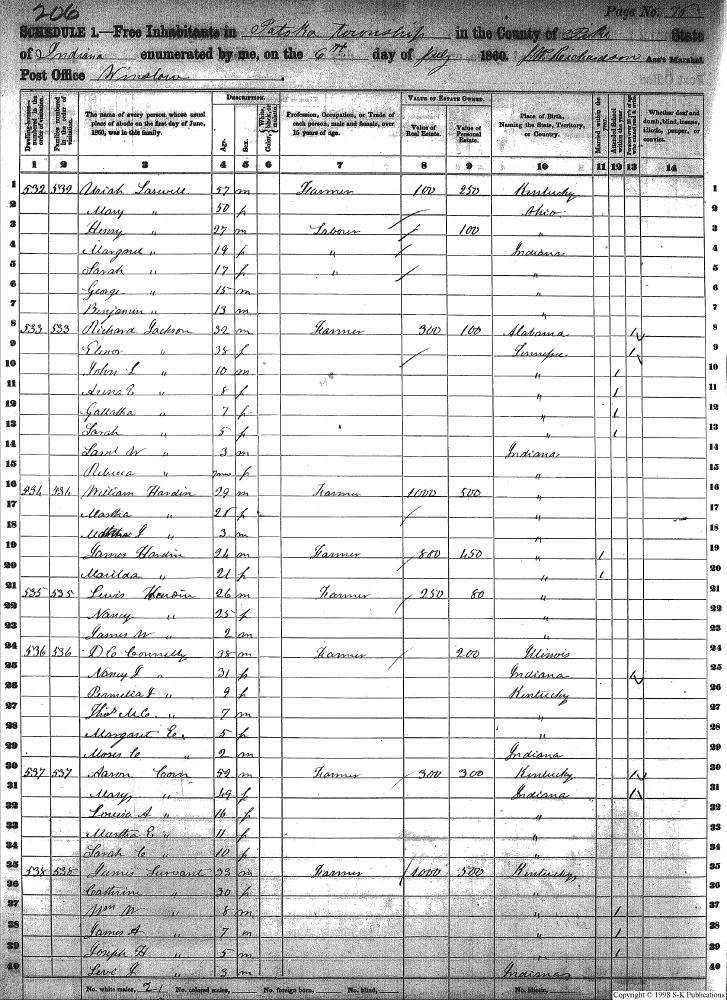 206
Page No. 76
SCHEDULE 1.—Free Inhabitants in Patoka township in the County of Pike State
of Indiana enumerated by me, on the 6th day of July 1860. Richardson Ass't Marshal.
Post Office Winslow.
Dwelling-houses—numbered in the order of visitation.
Families numbered in the order of visitation.
The name of every person whose usual place of abode on the first day of June, 1860, was in this family.
DESCRIPTION.
Age.
Sex.
Color, White, black, or mulatto.
Profession, Occupation, or Trade of each person, male and female, over 15 years of age.
VALUE OF ESTATE OWNED.
Value of Real Estate.
Value of Personal Estate.
Place of Birth, Naming the State, Territory, or Country.
Married within the year.
Attended School within the year.
Whether deaf and dumb, blind, insane, idiotic, pauper, or convict.
1 2 3 4 5 6 7 8 9 10 11 12 13 14
1 532 532 Uriah 57 m Farmer 100 250 Kentucky 1
2 Mary " 50 f Ohio 2
3 Henry " 27 m Labour / 100 " 3
4 Margaret " 19 f " / Indiana 4
5 Sarah " 17 f " / " 5
6 George " 15 m " 6
7 Benjamin " 13 m " 7
8 533 533 Richard Jackson 32 m Farmer 300 100 Alabama 1 8
9 Elenor " 38 f / Tennessee 1 9
10 John L " 10 m " 1 10
11 " 8 f " 1 11
12 " 7 f " 1 12
13 Sarah " 5 f " 1 13
14 Saml W " 3 m Indiana 14
15 Rebecca " f " 15
16 534 534 William Hardin 29 m Farmer 1000 500 " 16
17 Martha " 28 f / " 17
18 " 3 m " 18
19 James Hardin 24 m Farmer 800 450 " 1 19
20 Marilda " 21 f " 1 20
21 535 535 Lewis Hardin 26 m Farmer 250 80 " 21
22 Nancy " 25 f " 22
23 James W " 2 m " 23
24 536 536 D C Connelly 38 m Farmer 200 Illinois 24
25 Nancy J " 31 f Indiana 1 25
26 Permelia J " 9 f Kentucky 26
27 Thos McC. " 7 m " 27
28 Margaret E. " 5 f " 28
29 Moses C " 2 m Indiana 29
30 537 537 Aaron Corn 52 m Farmer 300 300 Kentucky 1 30
31 Mary " 49 f Indiana 1 31
32 Louisa A " 16 f " 32
33 Martha E " 11 f " 33
34 Sarah C " 10 f " 34
35 538 538 James Survant 33 m Farmer 1000 500 Kentucky 35
36 Cathrine " 30 f " 36
37 Wm W " 8 m " 1 37
38 James A " 7 m " 1 38
39 Joseph H " 5 m " 1 39
40 Levi J " 3 m Indiana 40
No. white males, 21 No. colored males, No. foreign born, No. blind, No. idiotic.
Copyright © 1998 S-K Publications